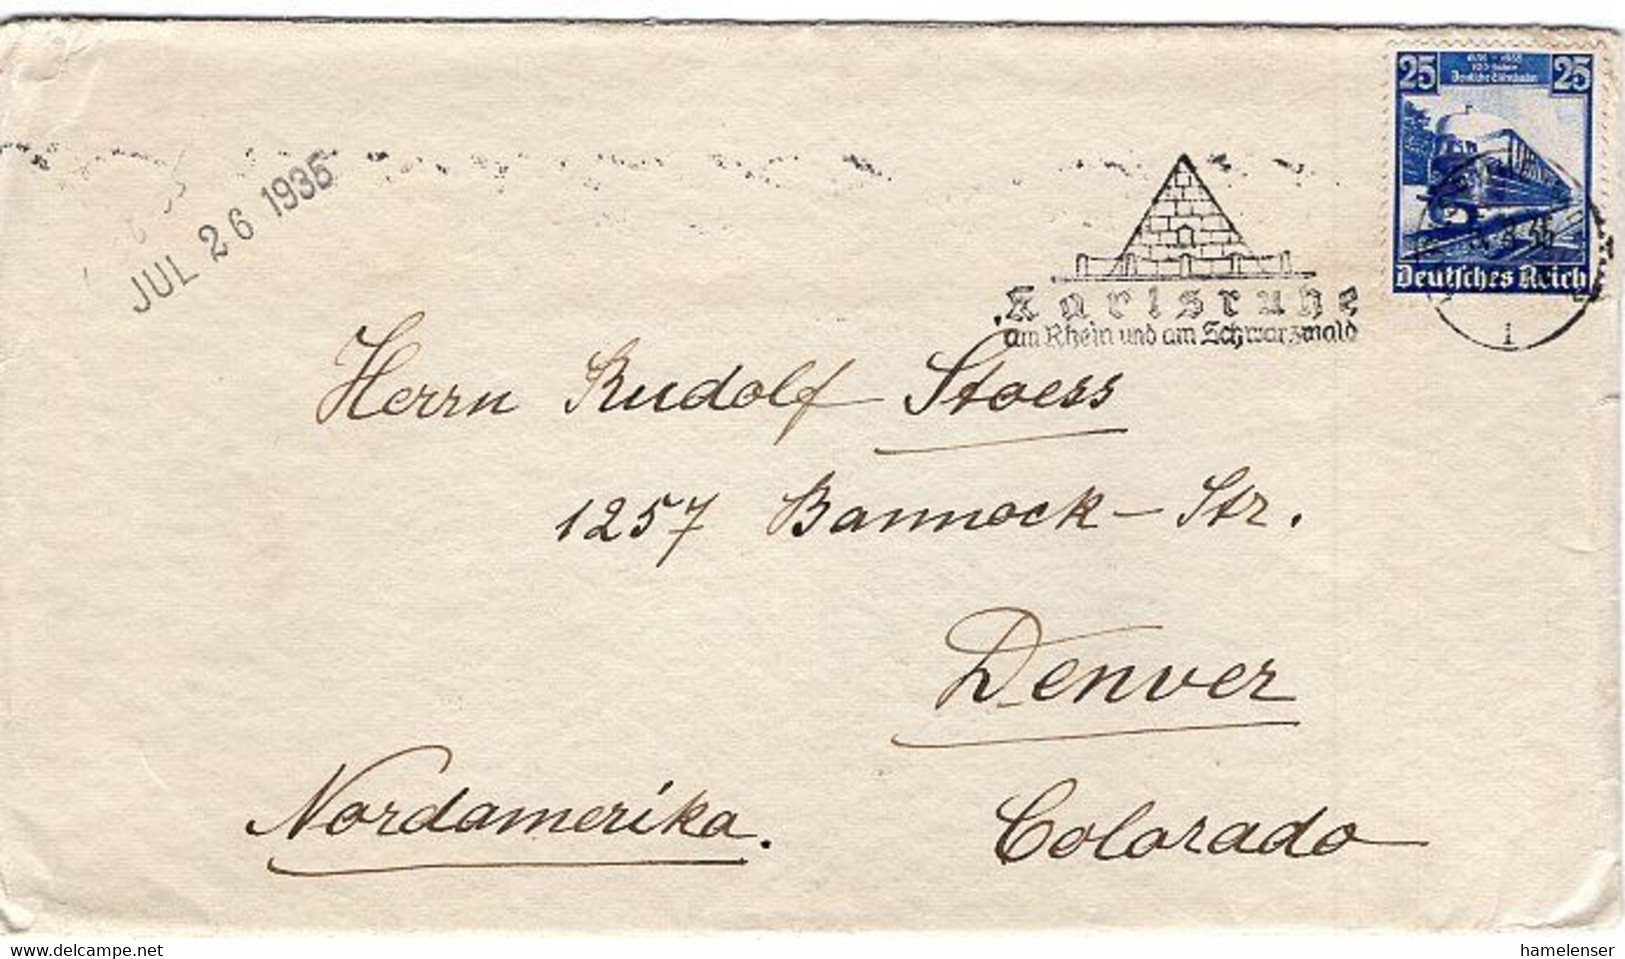 25 25
Deutsche Eisenbahn
Deutsches Reich
JUL 26 1935
Karlsruhe
am Rhein und am Schwarzwald
1
Herrn Rudolf Stoess
1257 Bannock-Str.
Denver
Nordamerika. Colorado
delcampe.net
hamelenser